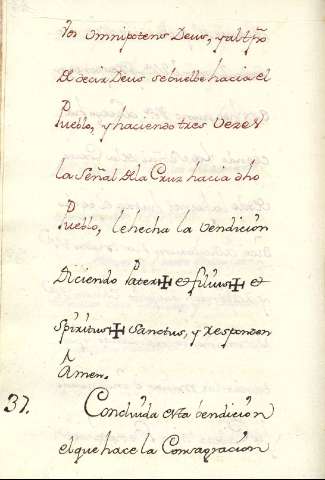 Vos omnipotens Deus, y al tpo
De decir Deus sebuelbe hacia el
Pueblo, y haciendo tres vezes
la Señal de la Cruz hacia dho
Pueblo, le hecha la bendición
Diciendo Pater ✠ et filius ✠ et
Spiritus ✠ Sanctus, y responden
Amen.
37. Concluida esta bendición
el que hace la Consagración